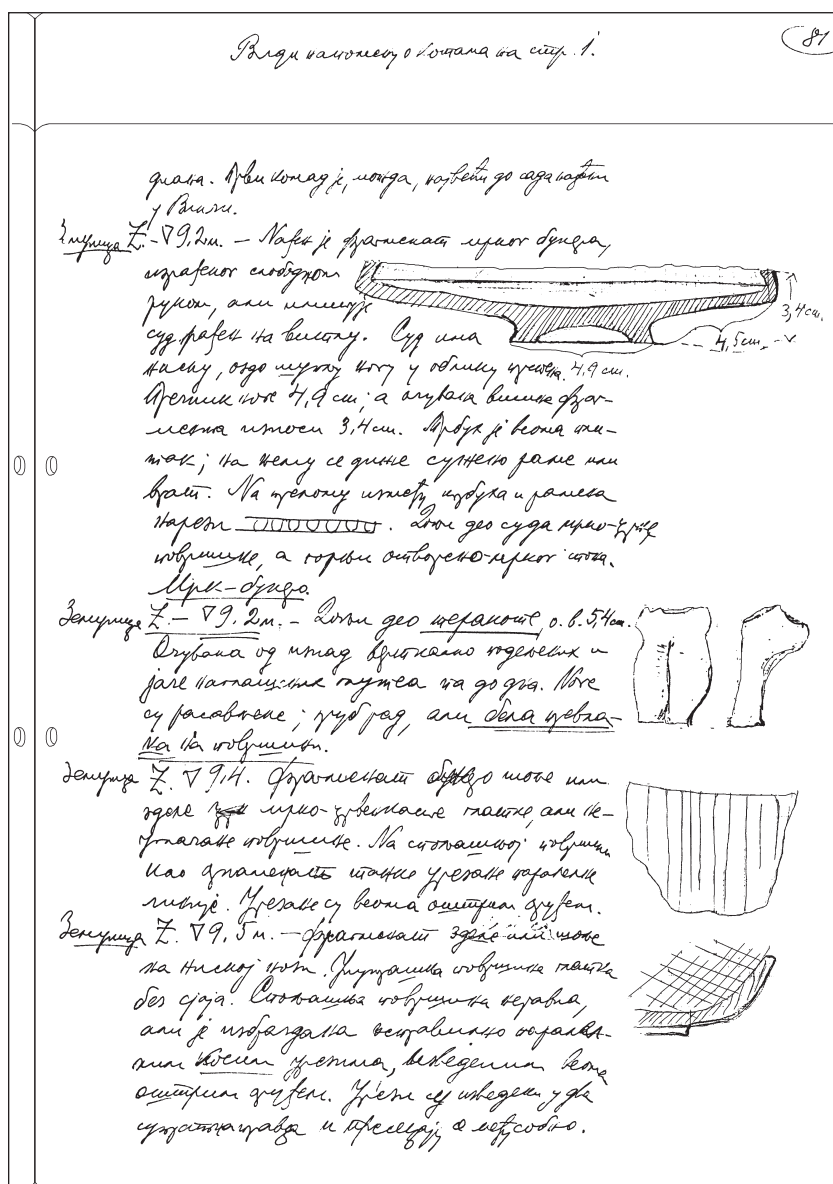 Види напомену о котама на стр. 1.
81
длана. Први комад је, можда, највећи до сада нађен
у Винчи.
Земуница Z. – ∇9,2м. – Нађен је фрагменат мрког бунара,
израђеног слободном
руком, али
суд рађен на витлу. Суд има
3,4 cm.
4,5 cm.
ниску, озго шупљу ногу у облику прстена. 4,9 cm.
Пречник ноге 4,9 cm; а очувана висина фраг-
мента износи 3,4 cm. Трбух је веома пли-
так; на њему се диже сужено раме или
врат. На прелому између трбуха и рамена
нарези . Доњи део суда мрко-црне
површине, а горњи отворено-мрког тона.
Мрк-
Земуница Z – ∇9.2м. – Доњи део теракоте, о. в. 5,4 cm.
Очувана од изнад вертикално подељених и
јаче наглашених глутеа па до дна. Ноге
су расављене; груб рад, али бела превла-
ка на површини.
Земуница Z. ∇9,4. Фрагменат шоље или
зделе мрко-црвенкасте глатке, али не-
углачане површине. На спољашној површини
као орнаменат танке урезане паралелне
линије. Урезане су веома оштрим оруђем.
Земуница Z. ∇9,5м. – Фрагменат зделе или шоље
на ниској нози. Унутрашња површина глатка
без сјаја. Спољашња површина неравна,
али је избраздана неправилно паралел-
ним косим урезима, изведеним веома
оштрим оруђем. Урези су изведени у два
супротна правца и пресецају се међусобно.